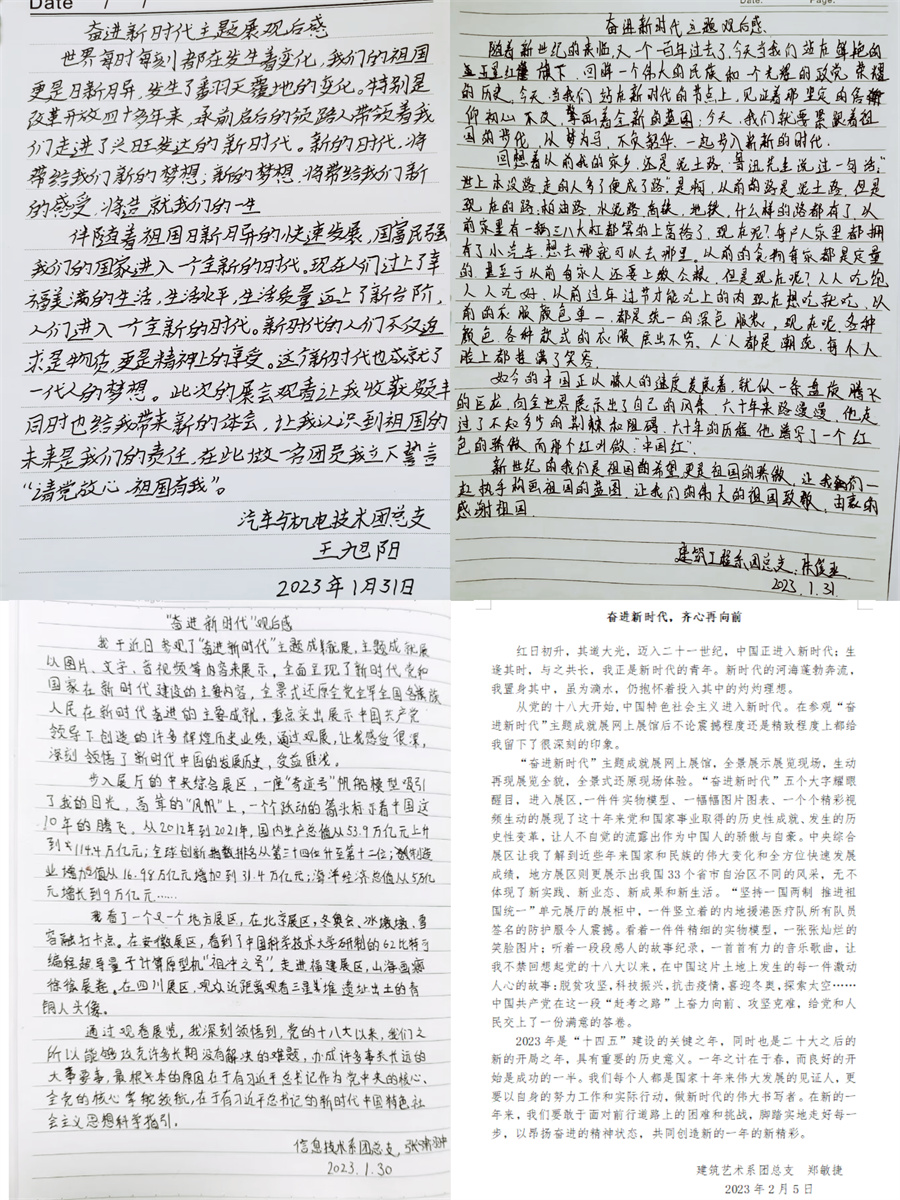 Date / /
奋进新时代主题展观后感
世界每时每刻都在发生着变化，我们的祖国
更是日新月异，发生了翻天覆地的变化。特别是
改革开放四十多年来，承前启后的领路人带领着我
们走进了兴旺发达的新时代。新的时代，将
带给我们新的梦想；新的梦想，将带给我们新
的感受，将造就我们的一生
伴随着祖国日新月异的快速发展，国富民强
我们的国家进入一个全新的时代。现在人们过上了幸
福美满的生活，生活水平，生活质量迈上了新台阶，
人们进入一个全新的时代。新时代的人们不仅追
求是物质，更是精神上的享受。这个新时代也成就了
一代人的梦想。此次的展会观看让我收获颇丰
同时也给我带来新的体会，让我认识到祖国的
未来是我们的责任，在此做一名团员我立下誓言
“请党放心，祖国有我”。
汽车与机电技术团总支
王旭阳
2023年1月31日
Date. Page.
奋进新时代主题观后感
随着新世纪的来临又一个百年过去了，今天当我们站在鲜艳的
五星红旗旗下，回眸一个伟大的民族和一个光耀的政党荣耀
的历史，今天，当我们站在新时代的节点上，见证着那坚定的信
仰初心不改，擘画着全新的蓝图；今天，我们就要紧跟着祖
国的步代，以梦为马，不负韶华，一起步入崭新的时代。
回想着从前我的家乡，还是泥土路，鲁迅先生说过一句话：“
世上本没路走的人多了便成了路”是啊，从前的路是泥土路，但是
现在的路，柏油路，水泥路，高铁，地铁，什么样的路都有了，以
前家里有一辆二八大杠都算的上富裕了，现在呢？每户人家里都拥
有了小汽车，想去那就可以去哪里。以前的食物每家都是定量
的，甚至于从前自家人还要上数个粮，但是现在呢？人人吃饱
人人吃好，从前过年过节才能吃上的肉现在想吃就吃，以
前的衣服颜色单一，都是统一的深色服装，现在呢，各种
颜色，各种款式的衣服层出不穷，人人都是潮流，每个人
脸上都挂满了笑容。
如今的中国正以骇人的速度发展着，就似一条盘旋腾飞
的巨龙，向全世界展示出了自己的风采，六十年来路漫漫，他走
过了不知多少的荆棘和阻碍，六十年的历程他谱写了一个红
色的骄傲，而那个红外做：“中国红”。
新世纪的我们是祖国的希望更是祖国的骄傲，让我们一
起执手构画祖国的蓝图，让我们的伟大的祖国致敬，由衷的
感谢祖国。
建筑工程系团总支：
2023.1.31.
“奋进新时代”观后感
我于近日参观了“奋进新时代”主题成就展，主题成就展
以图片、文字、音视频等内容来展示，全面呈现了新时代党和
国家在新时代建设的主要内容，全景式还原全党全军全国各族
人民在新时代奋进的主要成就，重点突出展示中国共产党
领导下创造的许多辉煌历史业绩，通过观展，让我感受很深，
深刻领悟了新时代中国的发展历史，受益匪浅。
步入展厅的中央综合展区，一座“奇迹号”帆船模型吸引
了我的目光，高耸的“风帆”上，一个个跃动的箭头标示着中国这
10年的腾飞。从2012年到2021年，国内生产总值从53.9万亿元上升
到114.4万亿元；全球创新指数排名从第三十四位升至第十二位；制造
业增加值从16.98万亿元增加到31.4万亿元；海洋经济总值从5万亿
元增长到9万亿元……
我看了一个又一个地方展区，在北京展区，冬奥会、冰墩墩、雪
容融打卡点。在安徽展区，看到了中国科学技术大学研制的62比特可
编程超导量子计算原型机“祖冲之号”，走进福建展区，山海画廊
徐徐展卷。在四川展区，观众近距离观看三星堆遗址出土的青
铜人头像。
通过观看展览，我深刻领悟到，党的十八大以来，我们之
所以能够攻克许多长期没有解决的难题，办成许多事关长远的
大事要事，最根本的原因在于有习近平总书记作为党中央的核心、
全党的核心掌舵领航，在于有习近平总书记的新时代中国特色社
会主义思想科学指引。
信息技术系团总支，
2023.1.30
奋进新时代，齐心再向前
红日初升，其道大光，迈入二十一世纪，中国正进入新时代；生
逢其时，与之共长，我正是新时代的青年。新时代的河海蓬勃奔流，
我置身其中，虽为滴水，仍抱怀着投入其中的灼灼理想。
从党的十八大开始，中国特色社会主义进入新时代。在参观“奋
进新时代”主题成就展网上展馆后不论震撼程度还是精致程度上都给
我留下了很深刻的印象。
“奋进新时代”主题成就展网上展馆，全景展示展览现场，生动
再现展览全貌，全景式还原现场体验。“奋进新时代”五个大字耀眼
醒目，进入展区，一件件实物模型、一幅幅图片图表、一个个精彩视
频生动的展现了这十年来党和国家事业取得的历史性成就、发生的历
史性变革，让人不自觉的流露出作为中国人的骄傲与自豪。中央综合
展区让我了解到近些年来国家和民族的伟大变化和全方位快速发展
成绩，地方展区则更展示出我国33个省市自治区不同的风采，无不
体现了新实践、新业态、新成果和新生活。“坚持一国两制 推进祖
国统一”单元展厅的展柜中，一件竖立着的内地援港医疗队所有队员
签名的防护服令人震撼。看着一件件精细的实物模型，一张张灿烂的
笑脸图片；听着一段段感人的故事纪录，一首首有力的音乐歌曲，让
我不禁回想起党的十八大以来，在中国这片土地上发生的每一件激动
人心的故事：脱贫攻坚，科技振兴，抗击疫情，喜迎冬奥，探索太空……
中国共产党在这一段“赶考之路”上奋力向前、攻坚克难，给党和人
民交上了一份满意的答卷。
2023年是“十四五”建设的关键之年，同时也是二十大之后的
新的开局之年，具有重要的历史意义。一年之计在于春，而良好的开
始是成功的一半。我们每个人都是国家十年来伟大发展的见证人，更
要以自身的努力工作和实际行动，做新时代的伟大书写者。在新的一
年来，我们要敢于面对前行道路上的困难和挑战，脚踏实地走好每一
步，以昂扬奋进的精神状态，共同创造新的一年的新精彩。
建筑艺术系团总支 郑敏捷
2023年2月5日